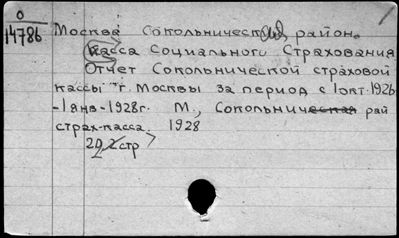 О
14786
Москва Сокольническ(ий) район.
Касса Социального Страхования
Отчет Сокольнической страховой
кассы г. Москвы за период с 1 окт. 1926
- 1 янв - 1928 г. М., Сокольническая рай
страх-касса. 1928
стр